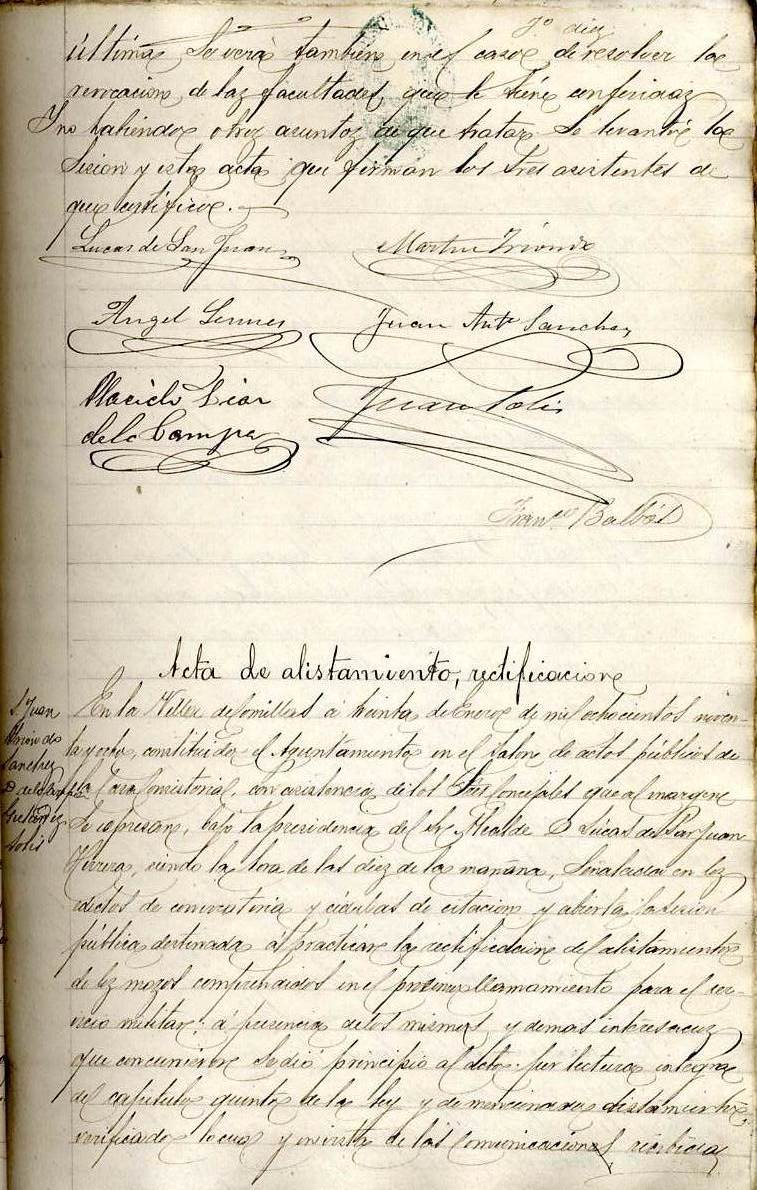 7º dia
última se verá tambien en el caso de resolver la
revocacion de las facultades que le tiene conferidas
Y no habiendo otros asuntos de que tratar se levantó la
sesion y esta acta que firman los tres asistentes de
que certifico.
Lucas de San Juan Martin
Angel Juan Antº Sanchez
Placido Diaz Juan Solis
de la Campa
Franco Balbás
Acta de alistamiento, rectificacion
S. Juan
Sanchez
D. de la Campa
Gutierrez
Solis
En la Villa de Comillas á treinta de Enero de mil ochocientos noven-
ta y ocho, constituido el Ayuntamiento en el Salon de actos públicos de
la Casa Consistorial, con asistencia de los Sres Concejales que al margen
se espresan, bajo la presidencia del Sr Alcalde D Lucas de San Juan
siendo la hora de las diez de la mañana, señalada en los
edictos de convocatoria y cédulas de citacion y abierta la sesion
pública destinada á practicar la rectificacion del alistamiento
de los mozos comprendidos en el proximo llamamiento para el ser-
vicio militar; á presencia de los mismos y demas interesados
que concurrieron se dió principio al acto por lectura integra
del capitulo quinto de la ley y de mencionado alistamiento
verificado y en vista de las comunicaciones recibidas